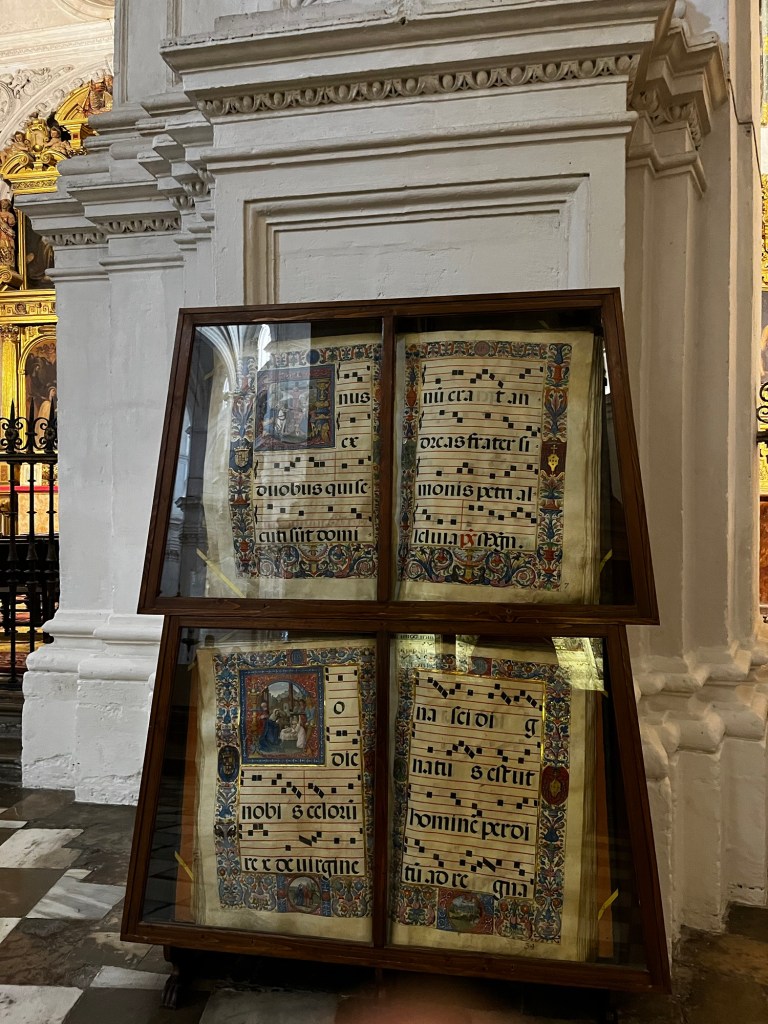 nus
ex
duobus qui se
cuti sūt domi
nū erant an
dreas frater si
monis petri al
leluia
o
die
nobi s celorū
re x de virgine
na sci di g
natu s est ut
hominē perdi
tū ad re gna